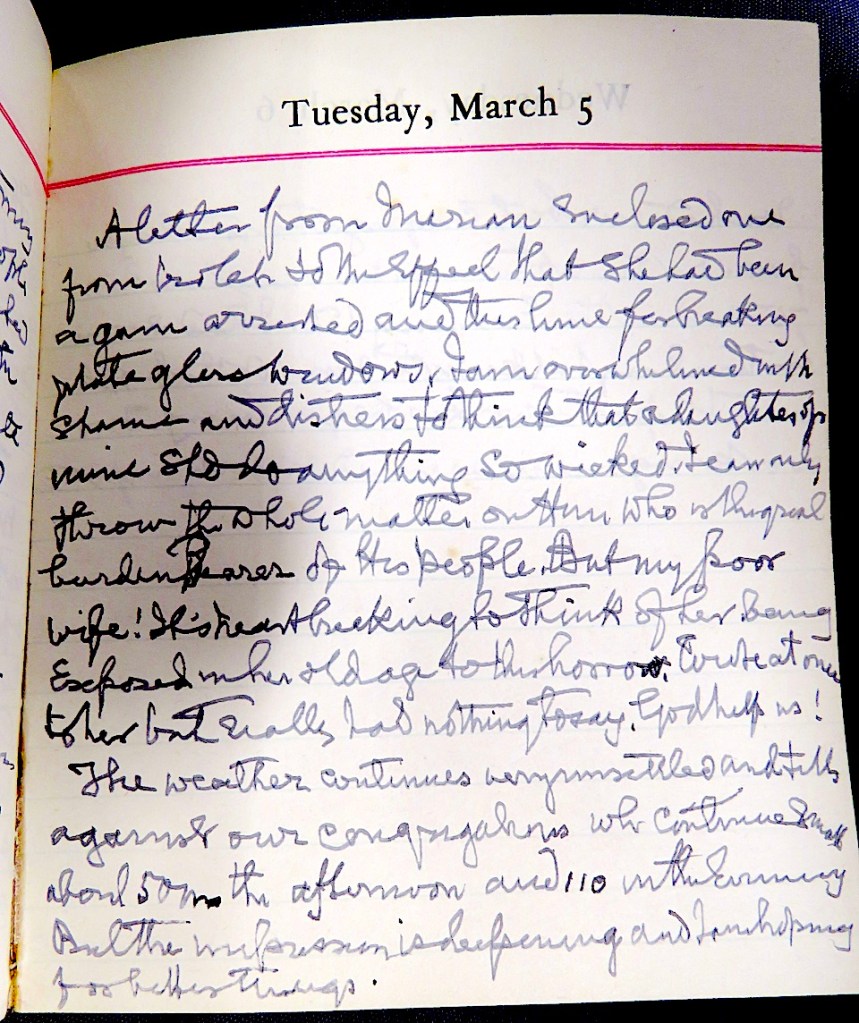 Tuesday, March 5
A letter from Marian enclosed one
from Violet to the effect that she had been
again arrested and this time for breaking
plate glass windows. I am overwhelmed with
shame and distress to think that a daughter of
mine shd do anything so wicked. I can only
throw the whole matter on Him who is the great
burden Bearer of His people. But my poor
wife! It's heartbreaking to think of her being
exposed in her old age to this horror. I wrote at once
to her but really had nothing to say. God help us!
The weather continues very unsettled and tells
against our congregations who continue small
about 50 in the afternoon and 110 in the Evening
But the impression is deepening and I am hoping
for better things.